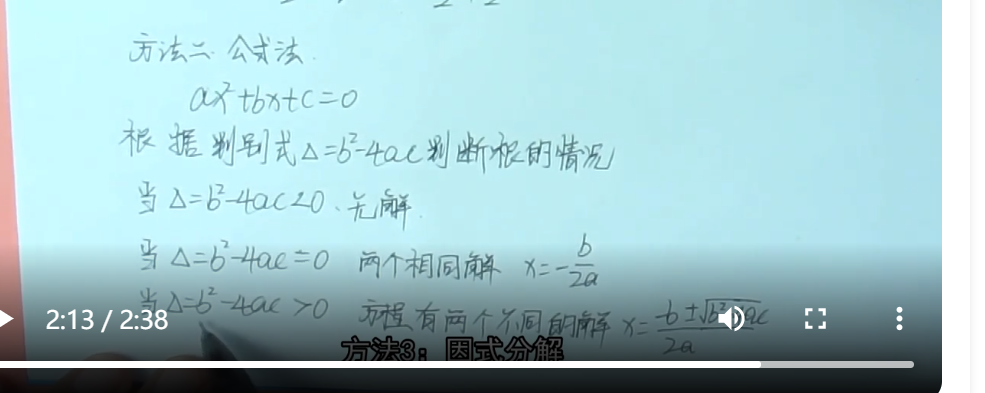 方法二 公式法.
ax²+bx+c=0
根据判别式Δ=b²-4ac判断根的情况
当Δ=b²-4ac<0、无解.
当Δ=b²-4ac=0 两个相同解 x=-b/2a
当Δ=b²-4ac>0 方程有两个不同的解 x=
2:13 / 2:38
方法3：因式分解